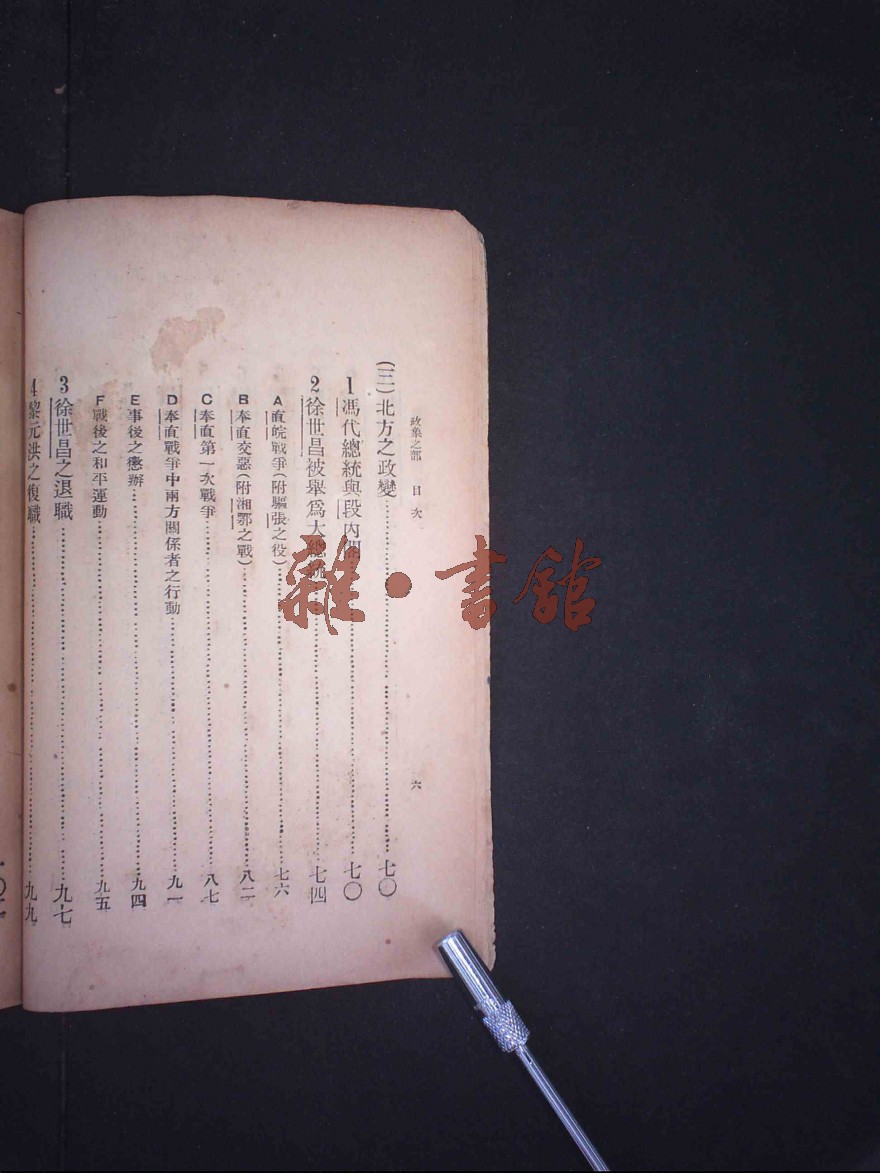 政集之部　目次　六
(三)北方之政變……七〇
1馮代總統與段內閣……七〇
2徐世昌被舉爲大總統……七四
A直皖戰爭(附驅張之役)……七六
B奉直交惡(附湘鄂之戰)……八二
C奉直第一次戰爭……八七
D奉直戰爭中兩方關係者之行動……九一
E事後之懲辦……九四
F戰後之和平運動……九五
3徐世昌之退職……九七
4黎元洪之復職……九九
雜·書館